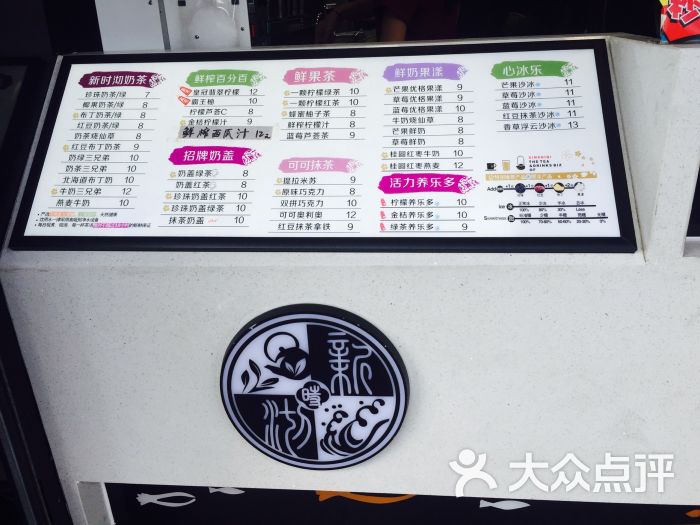 新时沏奶茶
珍珠奶茶/绿 7
椰果奶茶/绿 8
布丁奶茶/绿 8
红豆奶茶/绿 8
奶茶烧仙草 8
红豆布丁奶茶 9
奶绿三兄弟 10
奶茶三兄弟 10
北海道布丁奶茶 10
牛奶三兄弟 12
燕麦牛奶 10
鲜榨百分百
皇冠翡翠柠檬 12
霸王榄 10
柠檬芦荟C 8
金桔柠檬汁 9
鲜榨西瓜汁 12元
招牌奶盖
奶盖绿茶 8
奶盖红茶 8
珍珠奶盖红茶 9
珍珠奶盖绿茶 9
抹茶奶盖 10
鲜果茶
一颗柠檬绿茶 10
一颗柠檬红茶 10
蜂蜜柚子茶 8
鲜榨柠檬汁 8
蓝莓芦荟茶 9
可可抹茶
提拉米苏 9
原味巧克力 8
双拼巧克力 10
可可奥利奥 12
红豆抹茶拿铁 9
鲜奶果漾
芒果优格果漾 9
草莓优格果漾 9
蓝莓优格果漾 10
牛奶烧仙草 10
芒果鲜奶 8
草莓鲜奶 8
桂圆红枣牛奶 10
桂圆红枣燕麦 12
活力养乐多
柠檬养乐多 10
金桔养乐多 9
绿茶养乐多 9
心冰乐
芒果沙冰 11
草莓沙冰 11
蓝莓沙冰 11
红豆抹茶沙冰 13
香草浮云沙冰 13
THE TEA
&DRINKS BIZ
Ice
新时沏
大众点评